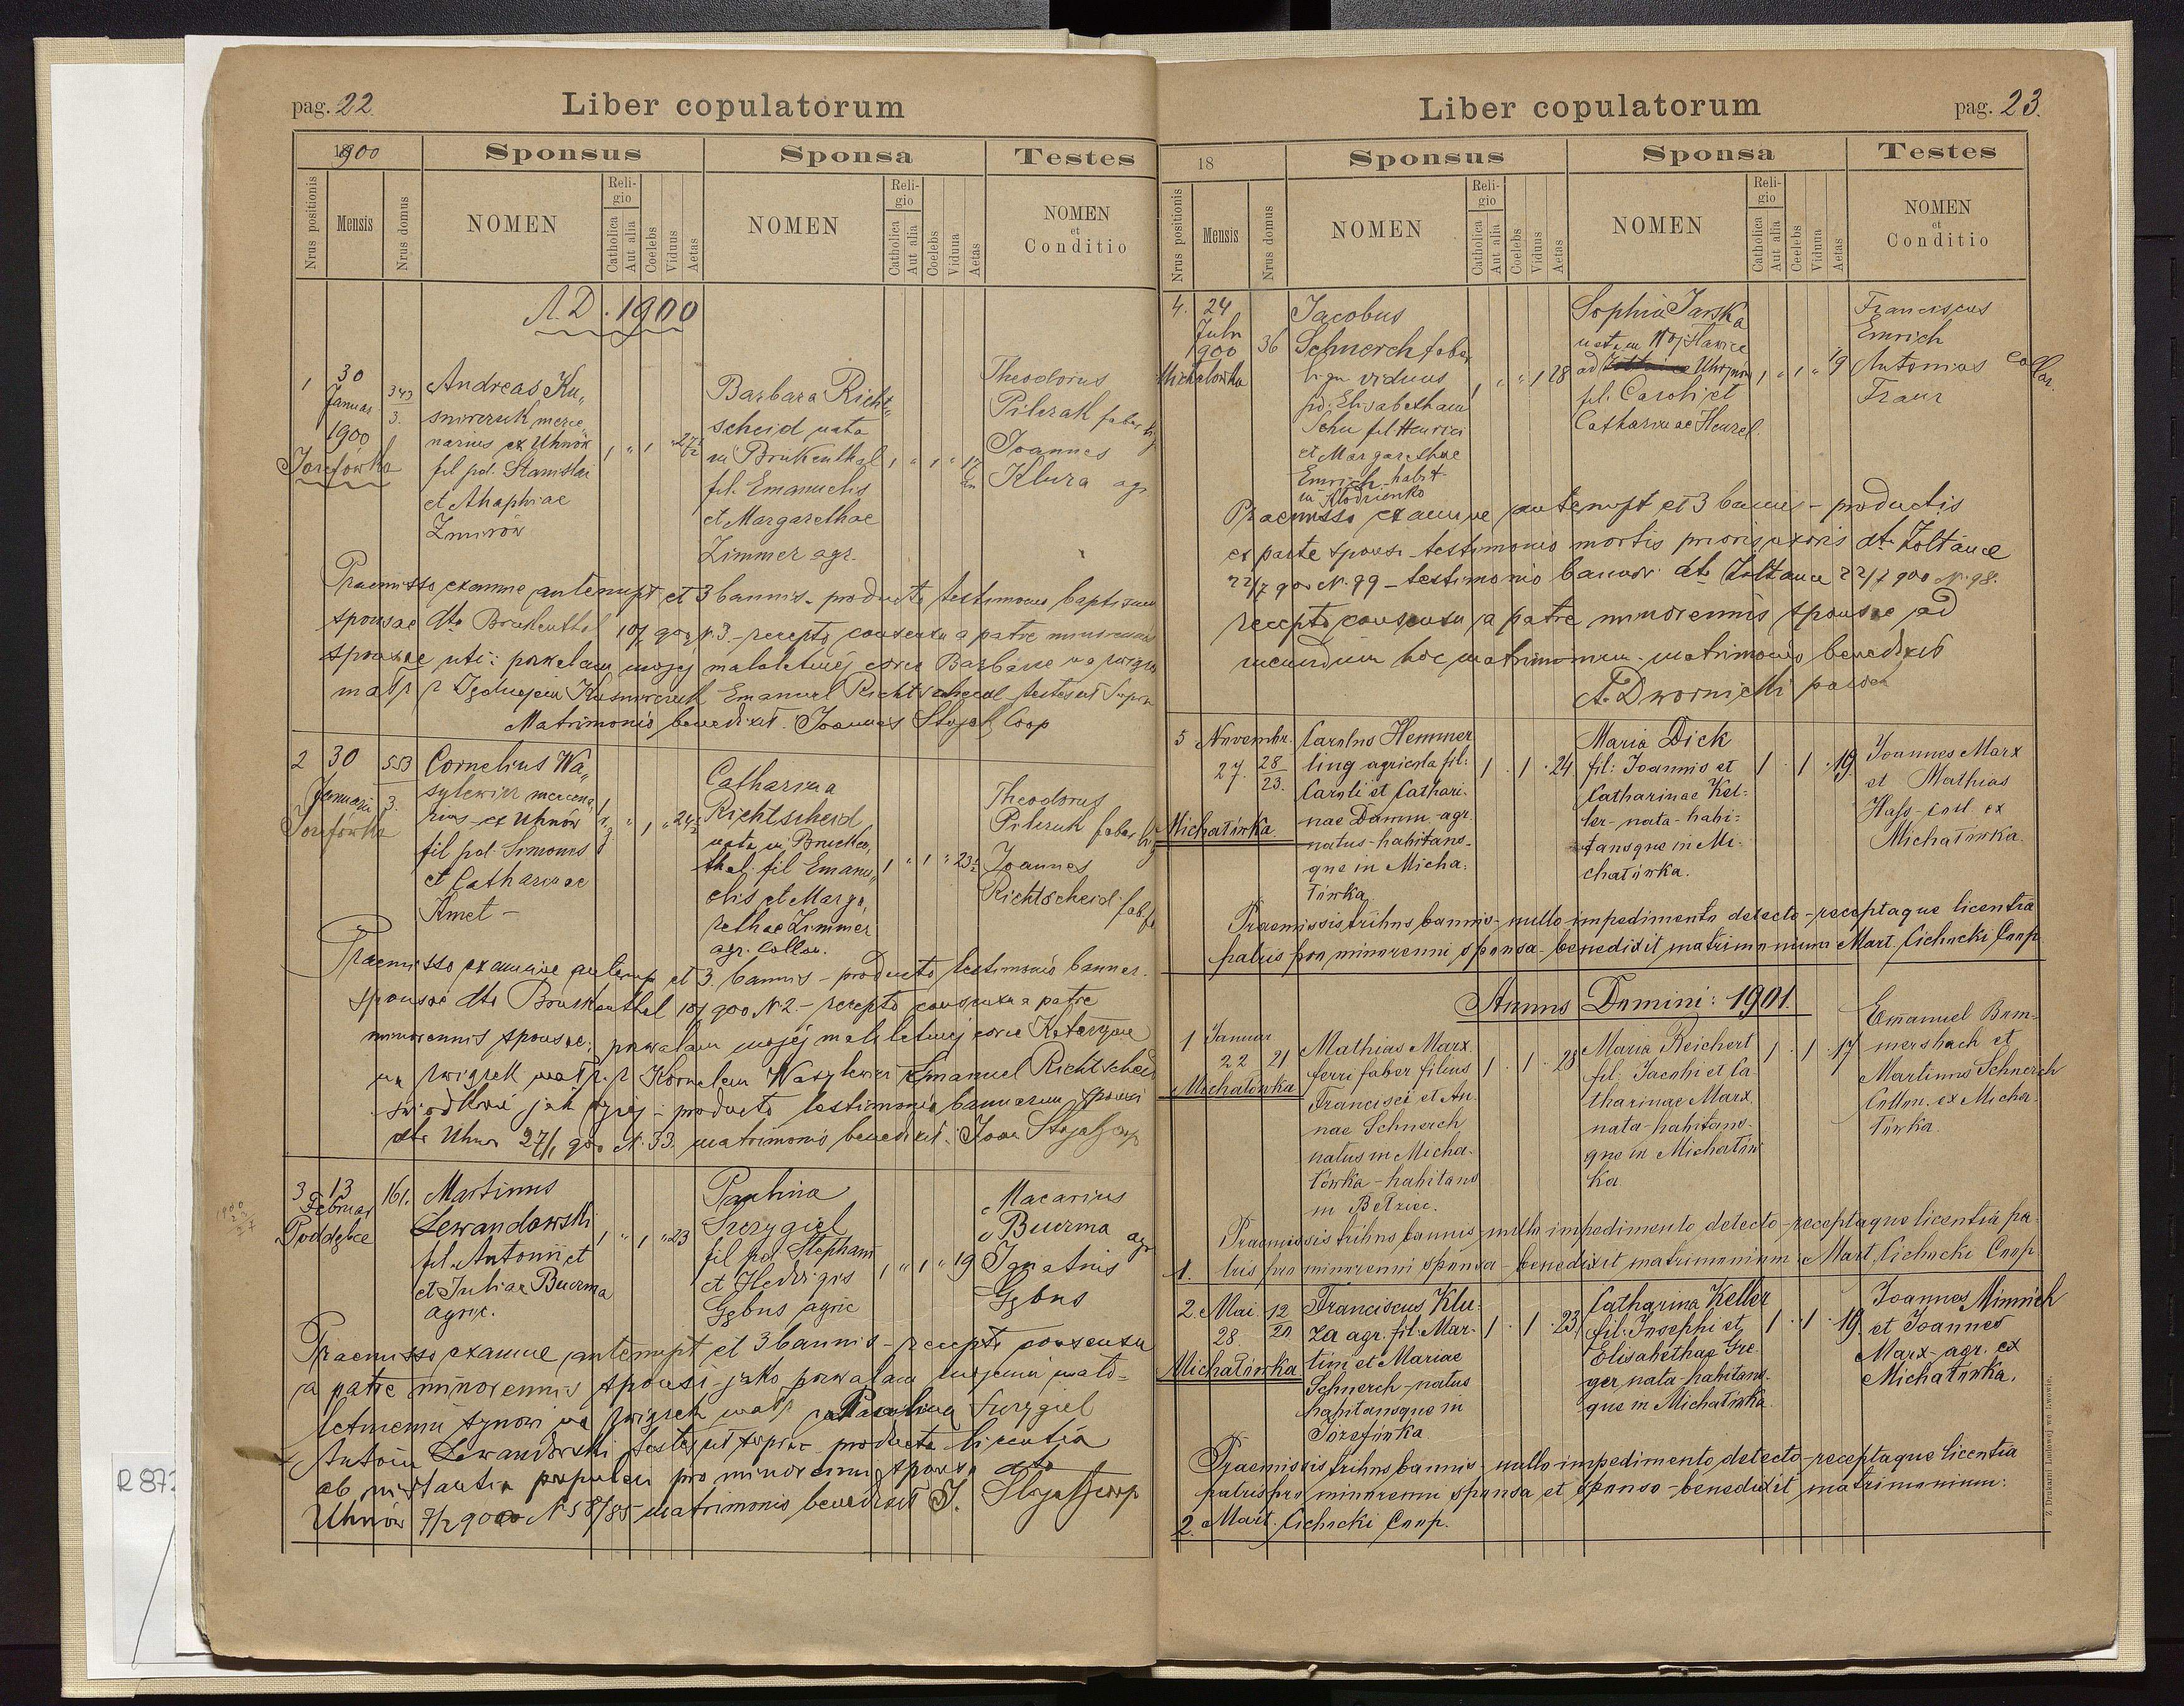 pag. 22
Liber copulatorum
1900
Sponsus
Sponsa
Testes
Nrus positionis
Mensis
Nrus domus
NOMEN
Reli-
gio
Catholica
Aut alia
Coelebs
Viduus
Aetas
NOMEN
Reli-
gio
Catholica
Aut alia
Coelebs
Vidua
Aetas
NOMEN
et
Conditio
A.D. 1900
1
30
Januar
1900
Józefówka
343
3.
Andreas Ku„
śnierczuk merce„
narius ex Uhnów
fil pd. Stanislai
et Ahaphiae
Żmirów
Barbara Richt„
scheid nata
in Brukenthal
fil. Emanuelis
et Margarethae
Zimmer agr.
Theodorus
Pilczak faber
Joannes
Kluza agr
Praemisso examine antenupt et 3 bannis - producto testimonio baptismi
sponsae dto Brukenthal 10/1 900 N. 3. - recepto consensu a patre minorennis
sponsae uti: pozwalam mojej małoletniej córce Barbarze na związek
małż z Jędrzejem Kuśnierczuk Emanuel Richtscheid testes ut supra
Matrimonio benedixit. Joannes Stojał Coop
2
30
Januarii
Józefówka
553
3.
Cornelius Wa„
sylewicz mercena„
rius ex Uhnów
fil pd. Simonis
et Catharinae
Kmet -
Catharina
Richtscheid
nata in Brucken„
thal fil Emanu„
elis et Marga„
rethae Zimmer
agr. Collon.
Theodorus
Pilczuk faber
Joannes
Richtscheid
Praemisso examine antenup et 3. bannis - producto testimonio bannor.
sponsae dto Bruckenthal 10/1 900 N 2. - recepto consensu a patre
minorennis sponsae: pozwalam mojej małoletniej córce Katarzynie
na związek małż. z Kornelem Wasylewicz Emanuel Richtscheid
świadkowie jak wyżej - producto testimonio bannorum sponsi
dto Uhnów 27/1 900 N. 33. matrimonio benedixit: Joan Stojał Coop
3
13
Februar
Poddębce
161.
Martinus
Lewandowski
fil. Antonii et
et Juliae Buczma
agric.
1 „ 1 „ 23
Paulina
Szczygieł
fil pd Stephani
et Hedvigis
Gębus agric
1 „ 1 „ 19
Macarius
Buczma agr
Ignatius
Gębus
Praemisso examine antenupt et 3 bannis - recepto consensu
a patre minorennis sponsi - jako pozwalam mojemu mało=
letniemu synowi na związek małż z Paulina Szczygieł
Antoni Lewandowski testes ut supra - producta licentia
ab instantia pupillari pro minorenni sponsa dto
Uhnów 7/2 900 N 58/85 matrimonio benedixit J. Stojał Coop
Liber copulatorum
pag. 23.
18
Sponsus
Sponsa
Testes
Nrus positionis
Mensis
Nrus domus
NOMEN
Reli-
gio
Catholica
Aut alia
Coelebs
Viduus
Aetas
NOMEN
Reli-
gio
Catholica
Aut alia
Coelebs
Vidua
Aetas
NOMEN
et
Conditio
4.
24
Juln
1900
Michałówka
36
Jacobus
Schnerch faber
lign viduus
pd. Elisabetham
Schu fil Henrici
et Margarethae
Emrich habit
in Kłodzienko
1 „ „ 1 28
Sophia Jarska
nata in Wojsławice
ad Uhrynów
fil. Caroli et
Catharinae Henzel
1 „ 1 „ 19
Franciscus
Emrich
Antonius
Franz
Collon.
Praemisso examine antenupt et 3 bannis - productis
ex parte sponsi testimonio mortis prioris uxoris dto Żółtańce
22/7 900 N. 99 - testimonio bannor. dto Żółtance 22/7 900 N. 98.
recepto consensu a patre minorennis sponsae ad
ineundum hoc matrimonium. matrimonio benedixit
A. Dwornicki paroch
5
Novembr.
27.
28
23.
Michałówka
Carolus Hemmer
ling agricola fil:
Caroli et Cathari-
nae Damm - agr.
natus - habitans-
que in Micha-
łówka
1 . 1 . 24
Maria Dick
fil: Joannis et
Catharinae Kel-
ler - nata - habi-
tansque in Mi-
chałówka.
1 . 1 . 19.
Joannes Marx
et Mathias
Hass - coll ex
Michałówka.
Praemissis tribus bannis - nullo impedimento detecto - receptaque licentia
patris pro minorenni sponsa - benedixit matrimonium Mart. Cichocki Coop
Annus Domini: 1901.
1
Januar
22
21
Michałówka
Mathias Marx
ferri faber filius
Francisci et An-
nae Schnerch
natus in Micha-
łówka - habitans
in Bełziec.
1 . 1 . 28
Maria Reichert
fil. Jacobi et Ca-
tharinae Marx.
nata - habitans-
que in Michałów-
ka.
1 . 1 . 17
Emanuel Bom-
mersbach et
Martinus Schnerch
Collon. ex Micha-
łówka.
Praemissis tribus bannis - nullo impedimento detecto - receptaque licentia pa-
1. tris pro minorenni sponsa - benedixit matrimonium Mart. Cichocki Coop.
2.
Mai.
28
12
20
Michałówka
Franciscus Klu-
za agr. fil. Mar-
tini et Mariae
Schnerch - natus
habitansque in
Józefówka
1 . 1 . 23
Catharina Keller
fil: Josephi et
Elisabethae Gre-
ger nata - habitans-
que in Michałówka
1 . 1 . 19.
Joannes Minnich
et Joannes
Marx - agr. ex
Michałówka.
Praemissis tribus bannis - nullo impedimento detecto - receptaque licentia
patris pro minorenni sponsa et sponso - benedixit matrimonium:
2. Mart. Cichocki Coop.
Z Drukarni Ludowej we Lwowie.
R 87